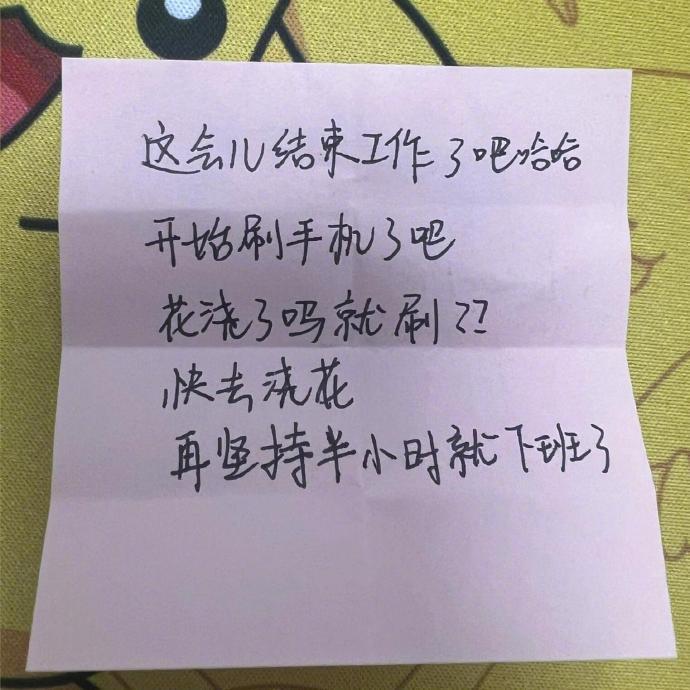 这会儿结束工作了吧哈哈
开始刷手机了吧
花浇了吗就刷??
快去浇花
再坚持半小时就下班了